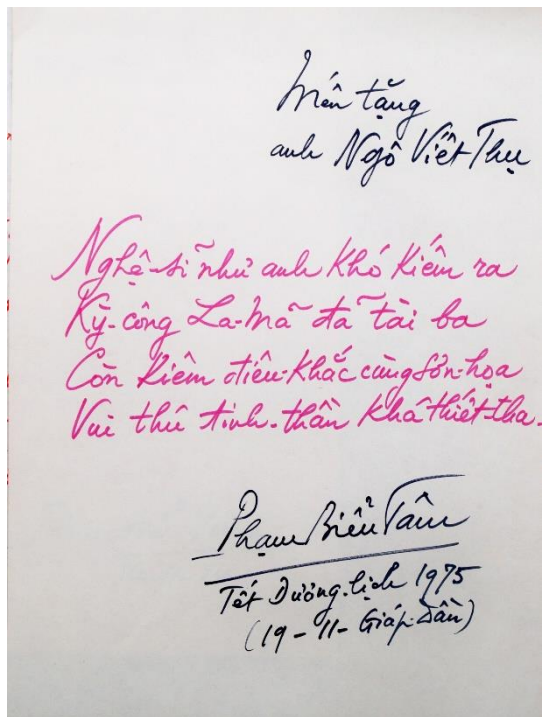 Mến tặng
anh Ngô Viết Thụ
Nghệ-sĩ như anh khó kiếm ra
Kỳ-công La-Mã đã tài ba
Còn kiêm điêu-khắc cùng sơn-họa
Vui thú tinh-thần khá thiết-tha.
Phạm Biểu Tâm
Tết Dương-lịch 1975
(19-11-Giáp-Dần)